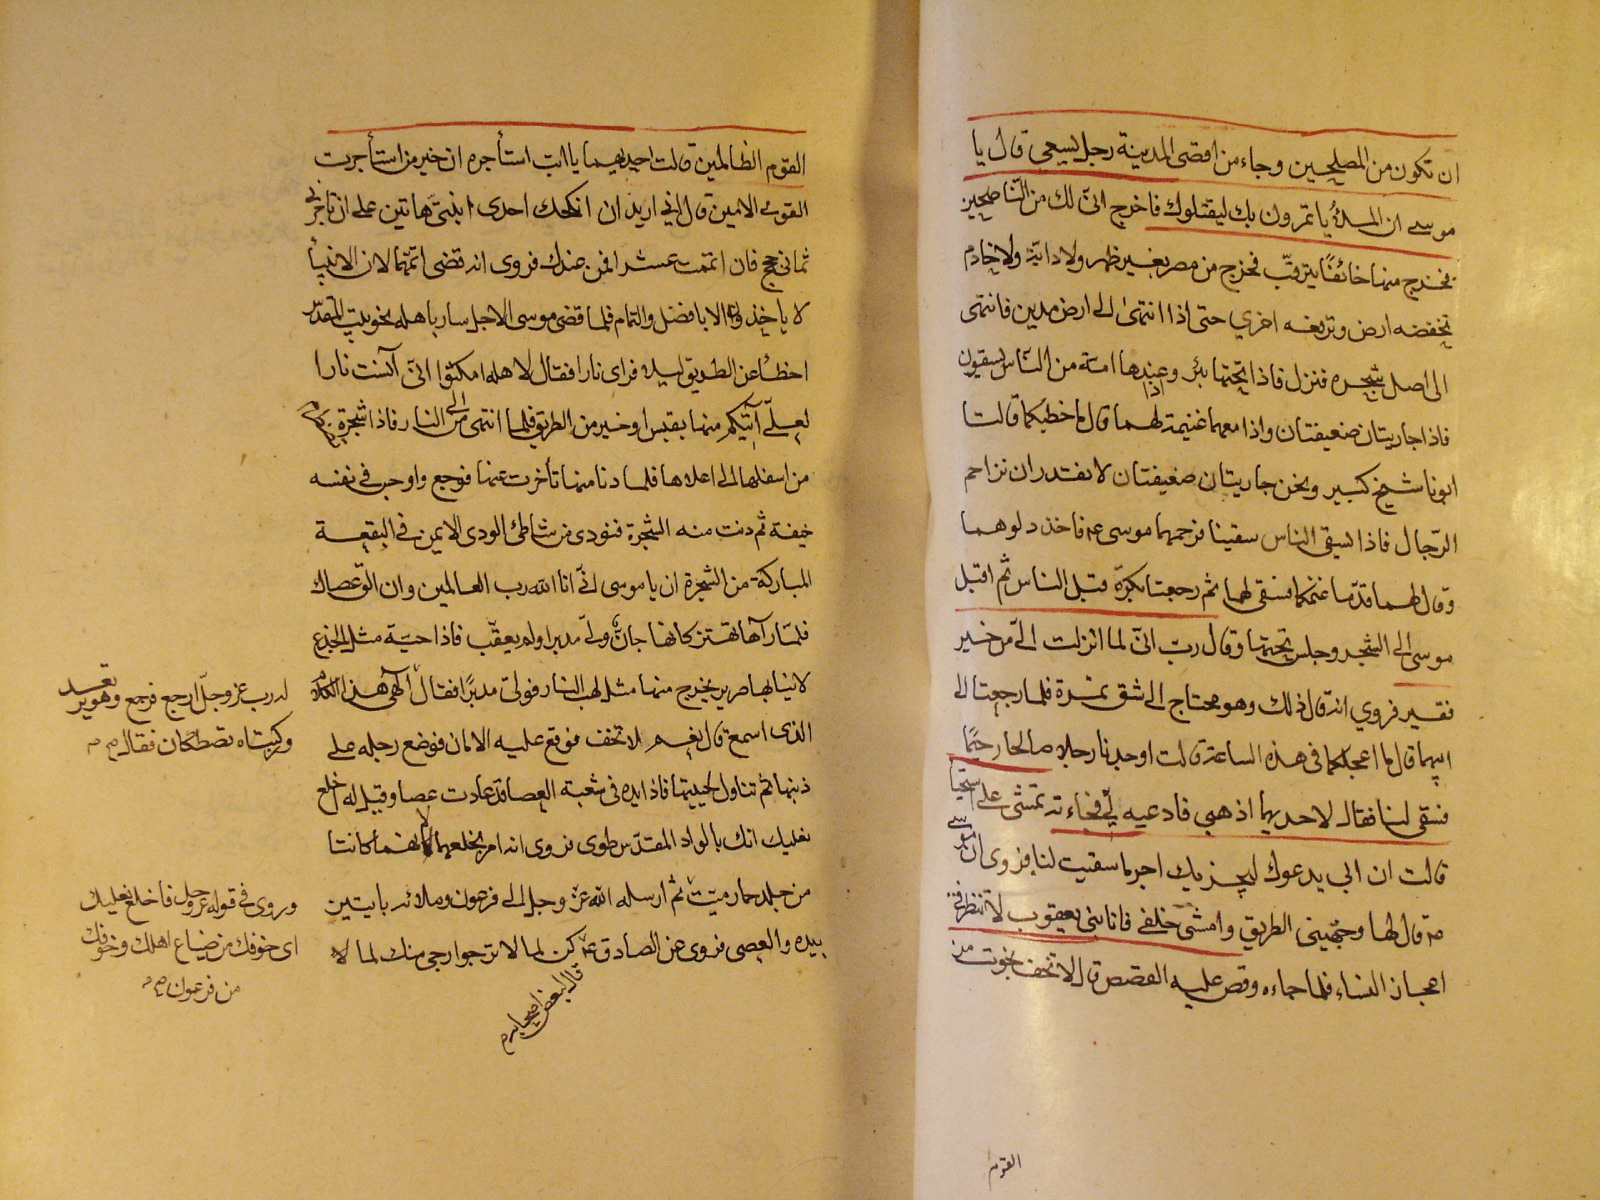 ان تكون من المصلحين وجاء من اقصى المدينة رجل يسعى قال يا
موسى ان الملأ يأتمرون بك ليقتلوك فاخرج انّى لك من النّاصحين
فخرج منها خائفًا يترقّب فخرج من مصر بغير ظهر ولا دابّة ولا خادم
تخفضه ارض وترفعه اخرى حتى اذا انتهى الى ارض مدين فانتهى
الى اصل شجره فنزل فاذا تحتها بئر وعندها امة من النّاس يسقون
فاذا جاريتان ضعيفتان واذا معهما غنيمة لهما قال ما خطبكما قالت
ابونا شيخ كبير ونحن جاريتان ضعيفتان لا نقدر ان نزاحم
الرّجال فاذا سقى الناس سقينا فرحمهما موسى ع فاخذ دلوهما
وقال لهما قدّما غنمكما فسقى لهما ثم رجعتا بكرة قبل الناس ثم اقبل
موسى الى الشجره وجلس تحتها وقال ربّ انّى لما انزلت الىّ من خير
فقير فروي انه قال ذلك وهو محتاج الى شق تمرة فلما رجعتا الى
ابيهما قال ما اعجلكما فى هذه الساعة قالت اوجدنا رجلا صالحا رحيمًا
فسقى لنا فقال لاحديهما اذهبي فادعيه لي فجاءته تمشى على استحيا
قالت ان ابي يدعوك ليجزيك اجر ما سقيت لنا فروى ان موسى
قال لها وجّهينى الطريق وامشى خلفى فانا بنى يعقوب لا ننظر فى
اعجاز النساء فلما جاءه وقص عليه القصص قال لا تخف نجوت من
القوم
القوم الظالمين قالت احديهما يا ابت استأجره ان خير من استأجرت
القوى الامين قال انى اريد ان انكحك احدى ابنتىّ هاتين على ان تأجرنى
ثمانى حجج فان اتممت عشرا فمن عندك فروى انه قضى اتمّهما لان الانبيأ
لا يأخذون الا بالفضل والتمام فلما قضى موسى الاجل سار باهله نحو بيت المقدّس
اخطأ عن الطريق ليلا فراى نارا فقال لاهله امكثوا انّى آنست نارا
لعلّى آتيكم منها بقبس او خبر من الطريق فلما انتهى الى النار فاذا شجرة
من اسفلها الى اعلاها فلما دنا منها تأخرت عنها فرجع واوجس فى نفسه
خيفة ثم دنت منه الشجرة فنودى من شاطئ الودى الايمن فى البقعة
المباركة من الشجرة ان يا موسى انّى انا الله رب العالمين وان الق عصاك
فلمّا رآها تهتز كانها جانّ ولّى مدبرا ولم يعقّب فاذا حيّة مثل الجذع
لانيابها صرير يخرج منها مثل لهب النار فولى مدبرًا فقال الٓهى هذا الكلام
الذى اسمع قال نعم لا تخف فوقع عليه الامان فوضع رجله على
ذنبها ثم تناول لحيتها فاذا يده فى شعبة العصا قد عادت عصا وقيل له اخلع
نعليك انك بالواد المقدّس طوى فروى انه امر بخلعهما لانهما كانتا
من جلد حمار ميّت ثم ارسله الله عزّ وجل الى فرعون وملائه بايتين
بيده والعصى فروى عن الصادق ع كن لما لا ترجوا رجى منك لما لا
قال لبعض اصحابه
له رب عز وجلّ ارجع فرجع وهو يرتعد
وركبتاه تصطكان فقال
وروى فى قوله عز وجل فاخلع نعليك
اى خوفك من ضياع اهلك وخوفك
من فرعون